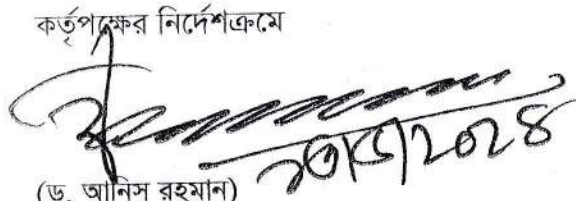 কর্তৃপক্ষের নির্দেশক্রমে
(ড. আনিস রহমান)